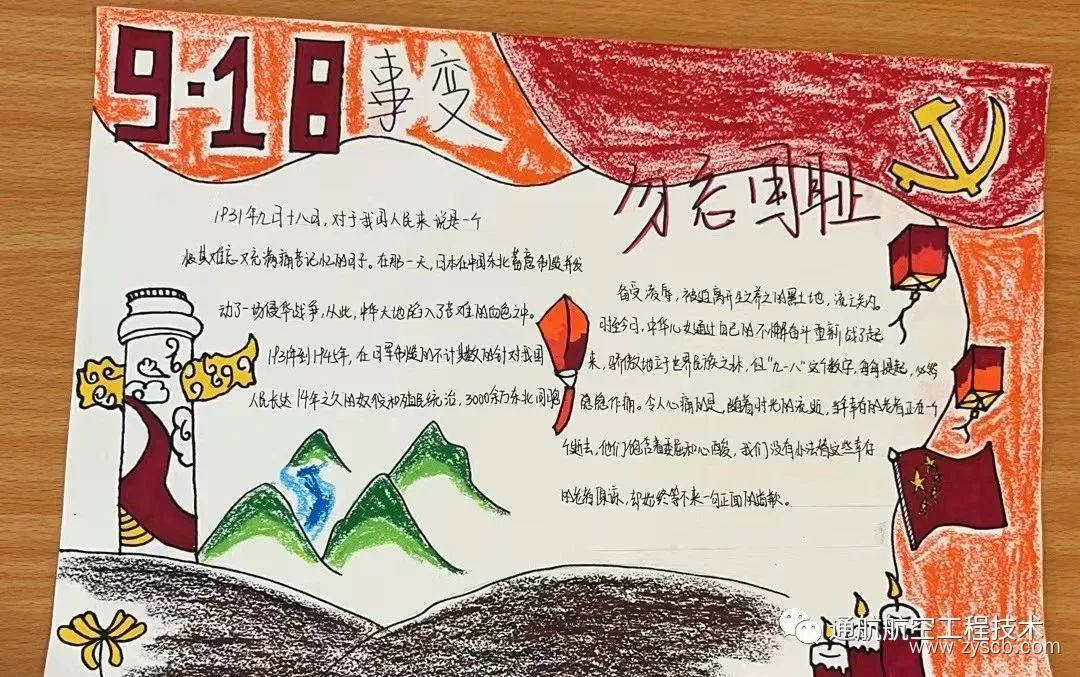 9·18事变
勿忘国耻
1931年九月十八日,对于我国人民来说是一个
极其难忘又充满痛苦记忆的日子。在那一天,日本在中国东北蓄意制造并发
动了一场侵华战争,从此,中华大地陷入了苦难的血色之中。
1931年到1945年,在日军制造的不计其数的针对我国
人民长达14年之久的奴役和殖民统治,3000余万东北同胞
备受凌辱,被迫离开生之养之的黑土地,流亡关内。
时至今日,中华儿女通过自己的不懈奋斗重新站了起
来,骄傲地立于世界民族之林,但"九一八"这个数字,每每提起,必然
隐隐作痛。令人心痛的是,随着时光的流逝,幸存的老者正在一个
个逝去,他们饱含着委屈和心酸,我们没有办法替这些幸存
的老者原谅,却始终等不来一句正面的道歉。
通航航空工程技术
www.zyscb.com